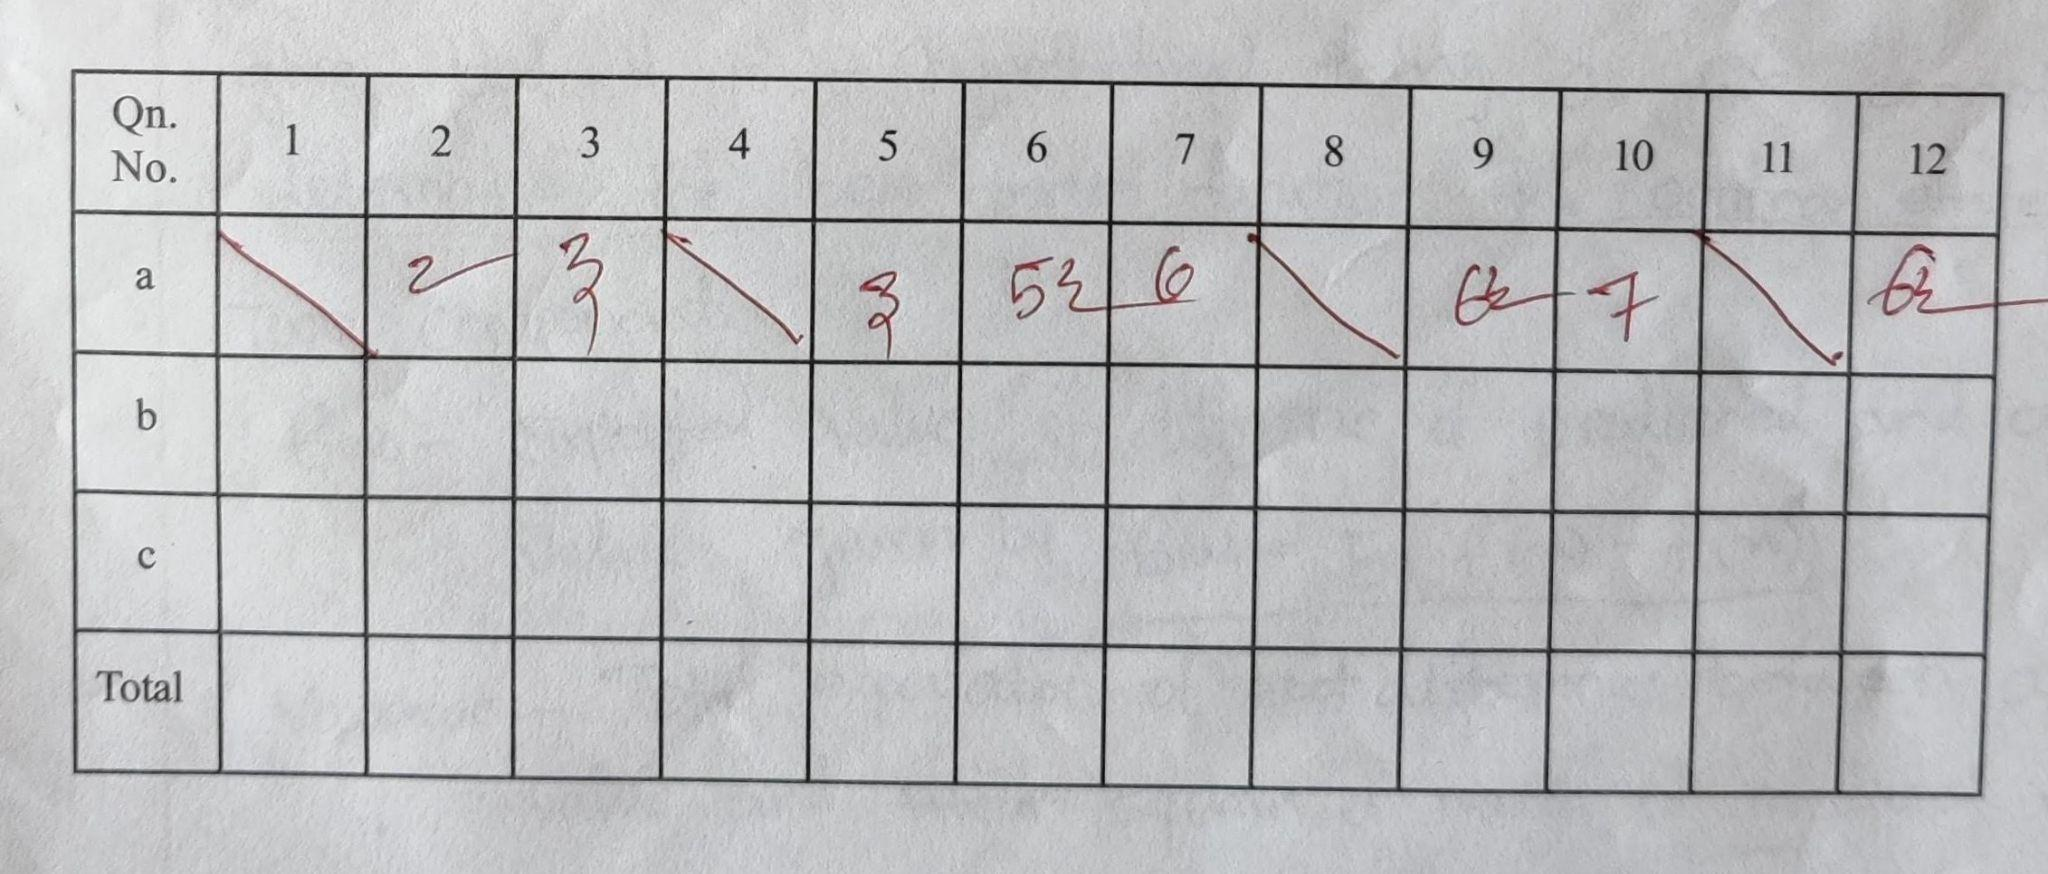 Qn. No. 1 2 3 4 5 6 7 8 9 10 11 12
a 2 3 3 5½ 6 6½ 7 6½
b
c
Total